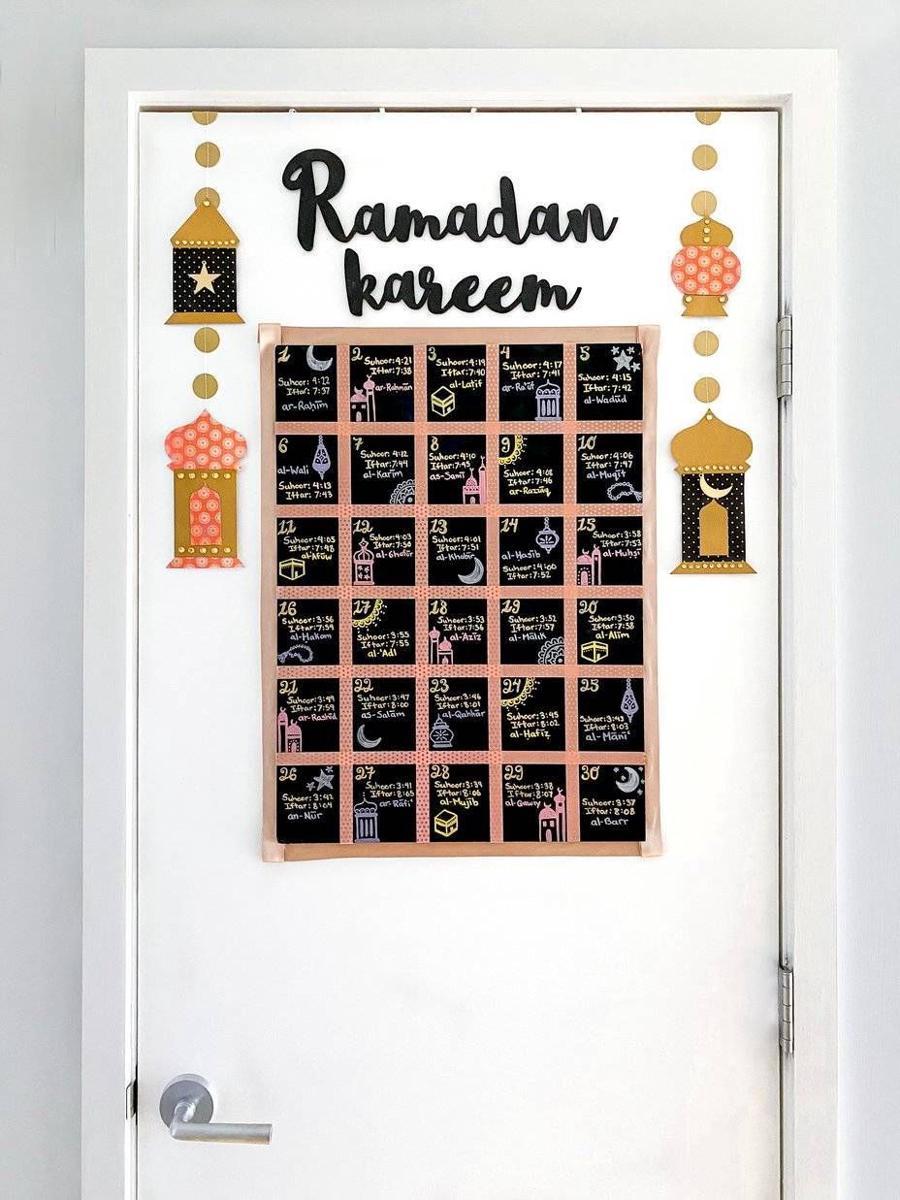 Ramadan
kareem
1
Suhoor: 4:22
Iftar: 7:37
ar-Rahīm
2
Suhoor: 4:21
Iftar: 7:38
ar-Rahmān
3
Suhoor: 4:19
Iftar: 7:40
al-Latīf
4
Suhoor: 4:17
Iftar: 7:41
ar-Ra'ūf
5
Suhoor: 4:15
Iftar: 7:42
al-Wadūd
6
al-Wali
Suhoor: 4:13
Iftar: 7:43
7
Suhoor: 4:12
Iftar: 7:44
al-Karīm
8
Suhoor: 4:10
Iftar: 7:45
as-Samī
9
Suhoor: 4:08
Iftar: 7:46
ar-Razzāq
10
Suhoor: 4:06
Iftar: 7:47
al-Muqīt
11
Suhoor: 4:05
Iftar: 7:48
al-Afūw
12
Suhoor: 4:03
Iftar: 7:50
al-Ghafūr
13
Suhoor: 4:01
Iftar: 7:51
al-Khabīr
14
al-Hasīb
Suhoor: 4:00
Iftar: 7:52
15
Suhoor: 3:58
Iftar: 7:53
16
Suhoor: 3:56
Iftar: 7:54
al-Hakam
17
Suhoor: 3:55
Iftar: 7:55
al-'Adl
18
Suhoor: 3:53
Iftar: 7:56
al-Azīz
19
Suhoor: 3:52
Iftar: 7:57
al-Mālik
20
Suhoor: 3:50
Iftar: 7:58
al-Alīm
21
Suhoor: 3:49
Iftar: 7:59
ar-Rashīd
22
Suhoor: 3:47
Iftar: 8:00
as-Salām
23
Suhoor: 3:46
Iftar: 8:01
al-Qahhār
24
Suhoor: 3:45
Iftar: 8:02
al-Hafīz
25
Suhoor: 3:43
Iftar: 8:03
al-Māni'
26
Suhoor: 3:42
Iftar: 8:04
an-Nūr
27
Suhoor: 3:41
Iftar: 8:05
ar-Rāfi'
28
Suhoor: 3:39
Iftar: 8:06
al-Mujīb
29
Suhoor: 3:38
Iftar: 8:07
al-Qawīy
30
Suhoor: 3:37
Iftar: 8:08
al-Barr